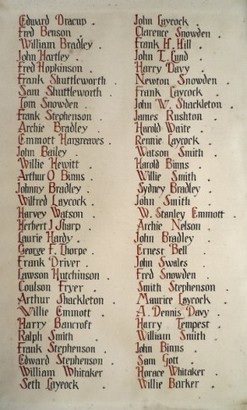 Edward Dracup .
Fred Benson .
William Bradley .
John Hartley .
Fred Hopkinson .
Frank Shuttleworth .
Sam Shuttleworth .
Tom Snowden .
Frank Stephenson .
Archie Bradley .
Emmott Hargreaves .
John Bailey .
Willie Hewitt .
Arthur O Binns .
Johnny Bradley .
Wilfred Laycock .
Harvey Watson .
Herbert J Sharp .
Laurie Hardy .
George F. Thorpe .
Frank Driver .
Lawson Hutchinson .
Coulson Fryer .
Arthur Shackleton .
Willie Emmott .
Harry Bancroft .
Ralph Smith .
Frank Stephenson .
Edward Stephenson .
William Whitaker .
Seth Laycock .
John Laycock .
Clarence Snowden .
Frank H. Hill .
John T. Lund .
Harry Davy .
Newton Snowden .
Frank Laycock .
John W. Shackleton .
James Rushton .
Harold Waite .
Rennie Laycock .
Watson Smith .
Harold Binns .
Willie Smith .
Sydney Bradley .
John Smith .
W. Stanley Emmott .
Archie Nelson .
John Bradley .
Ernest Bell .
John Swales .
Fred Snowden .
Smith Stephenson .
Maurice Laycock .
A. Dennis Davy .
Harry Tempest .
William Smith .
John Binns .
Sam Gott .
Horace Whitaker .
Willie Barker .